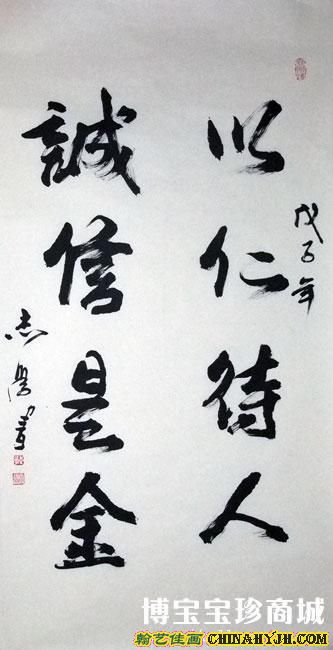 以仁待人
戊子年
誠信是金
志 書
博宝宝珍商城
翰艺佳画 CHINAHYJH.COM